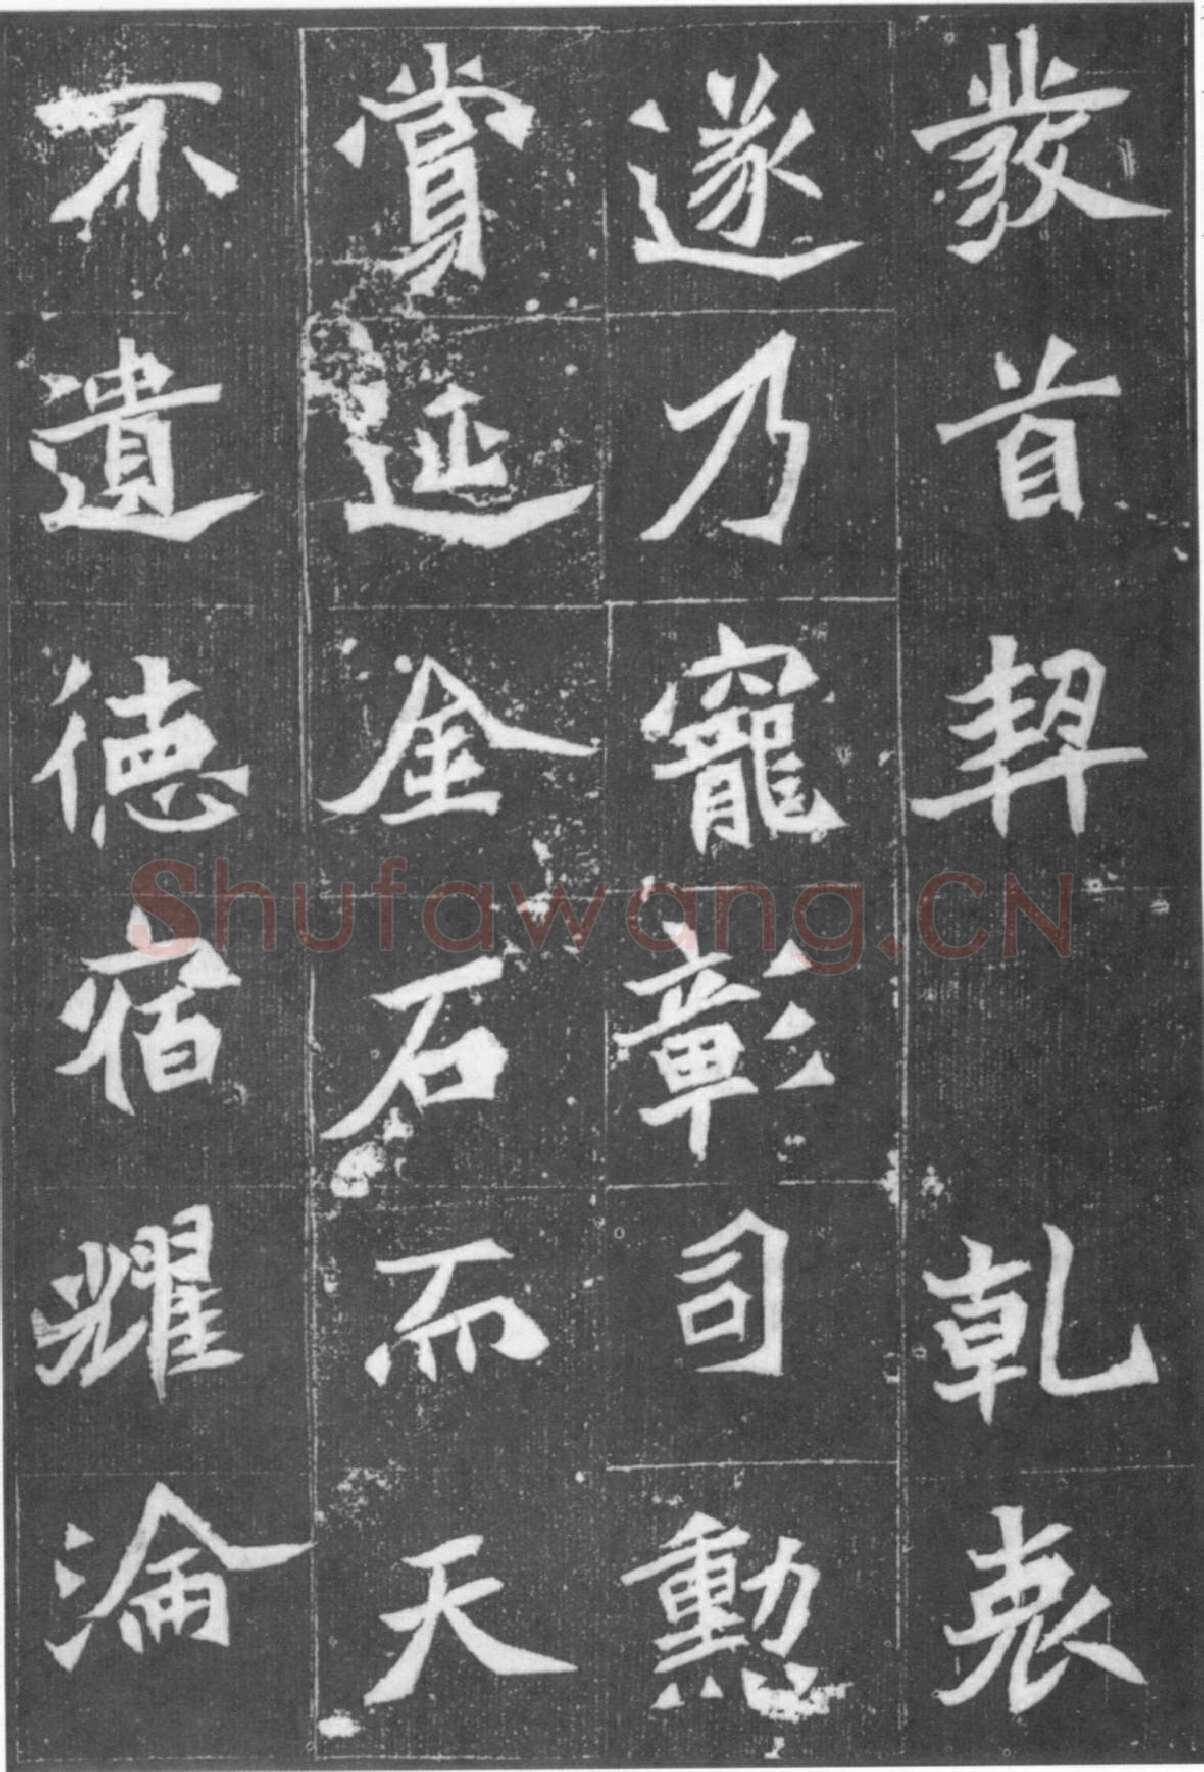 發首契　乾衷
遂乃寵彰司勳
賞延金石而天
不遺德宿耀淪
Shufawang.CN